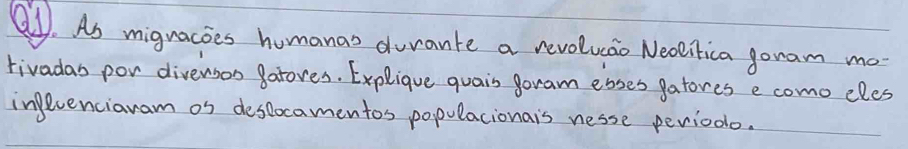 Q1. As migrações humanas durante a revolução Neolítica foram mo-
tivadas por diversos fatores. Explique quais foram esses fatores e como eles
influenciaram os deslocamentos populacionais nesse período.